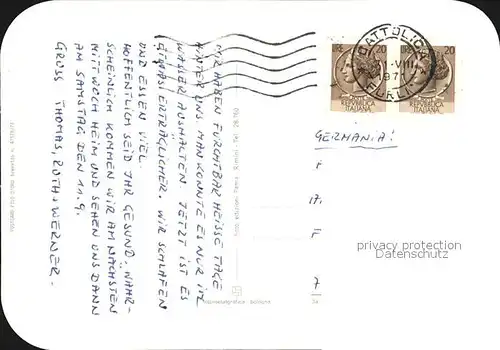 WIR HABEN FURCHTBAR HEISSE TAGE
HINTER UNS. MAN KONNTE ES NUR IM
WASSER AUSHALTEN. JETZT IST ES
ETWAS ERTRÄGLICHER. WIR SCHLAFEN
UND ESSEN VIEL.
HOFFENTLICH SEID IHR GESUND. WAHR-
SCHEINLICH KOMMEN WIR AM NÄCHSTEN
MITTWOCH HEIM UND SEHEN UNS DANN
AM SAMSTAG, DEN 11.9.
GRUSS, THOMAS, RUTH + WERNER.
CATTOLICA
20
20
REPVBBLICA
ITALIANA
REPVBBLICA
ITALIANA
GERMANIA!
privacy protection
Datenschutz